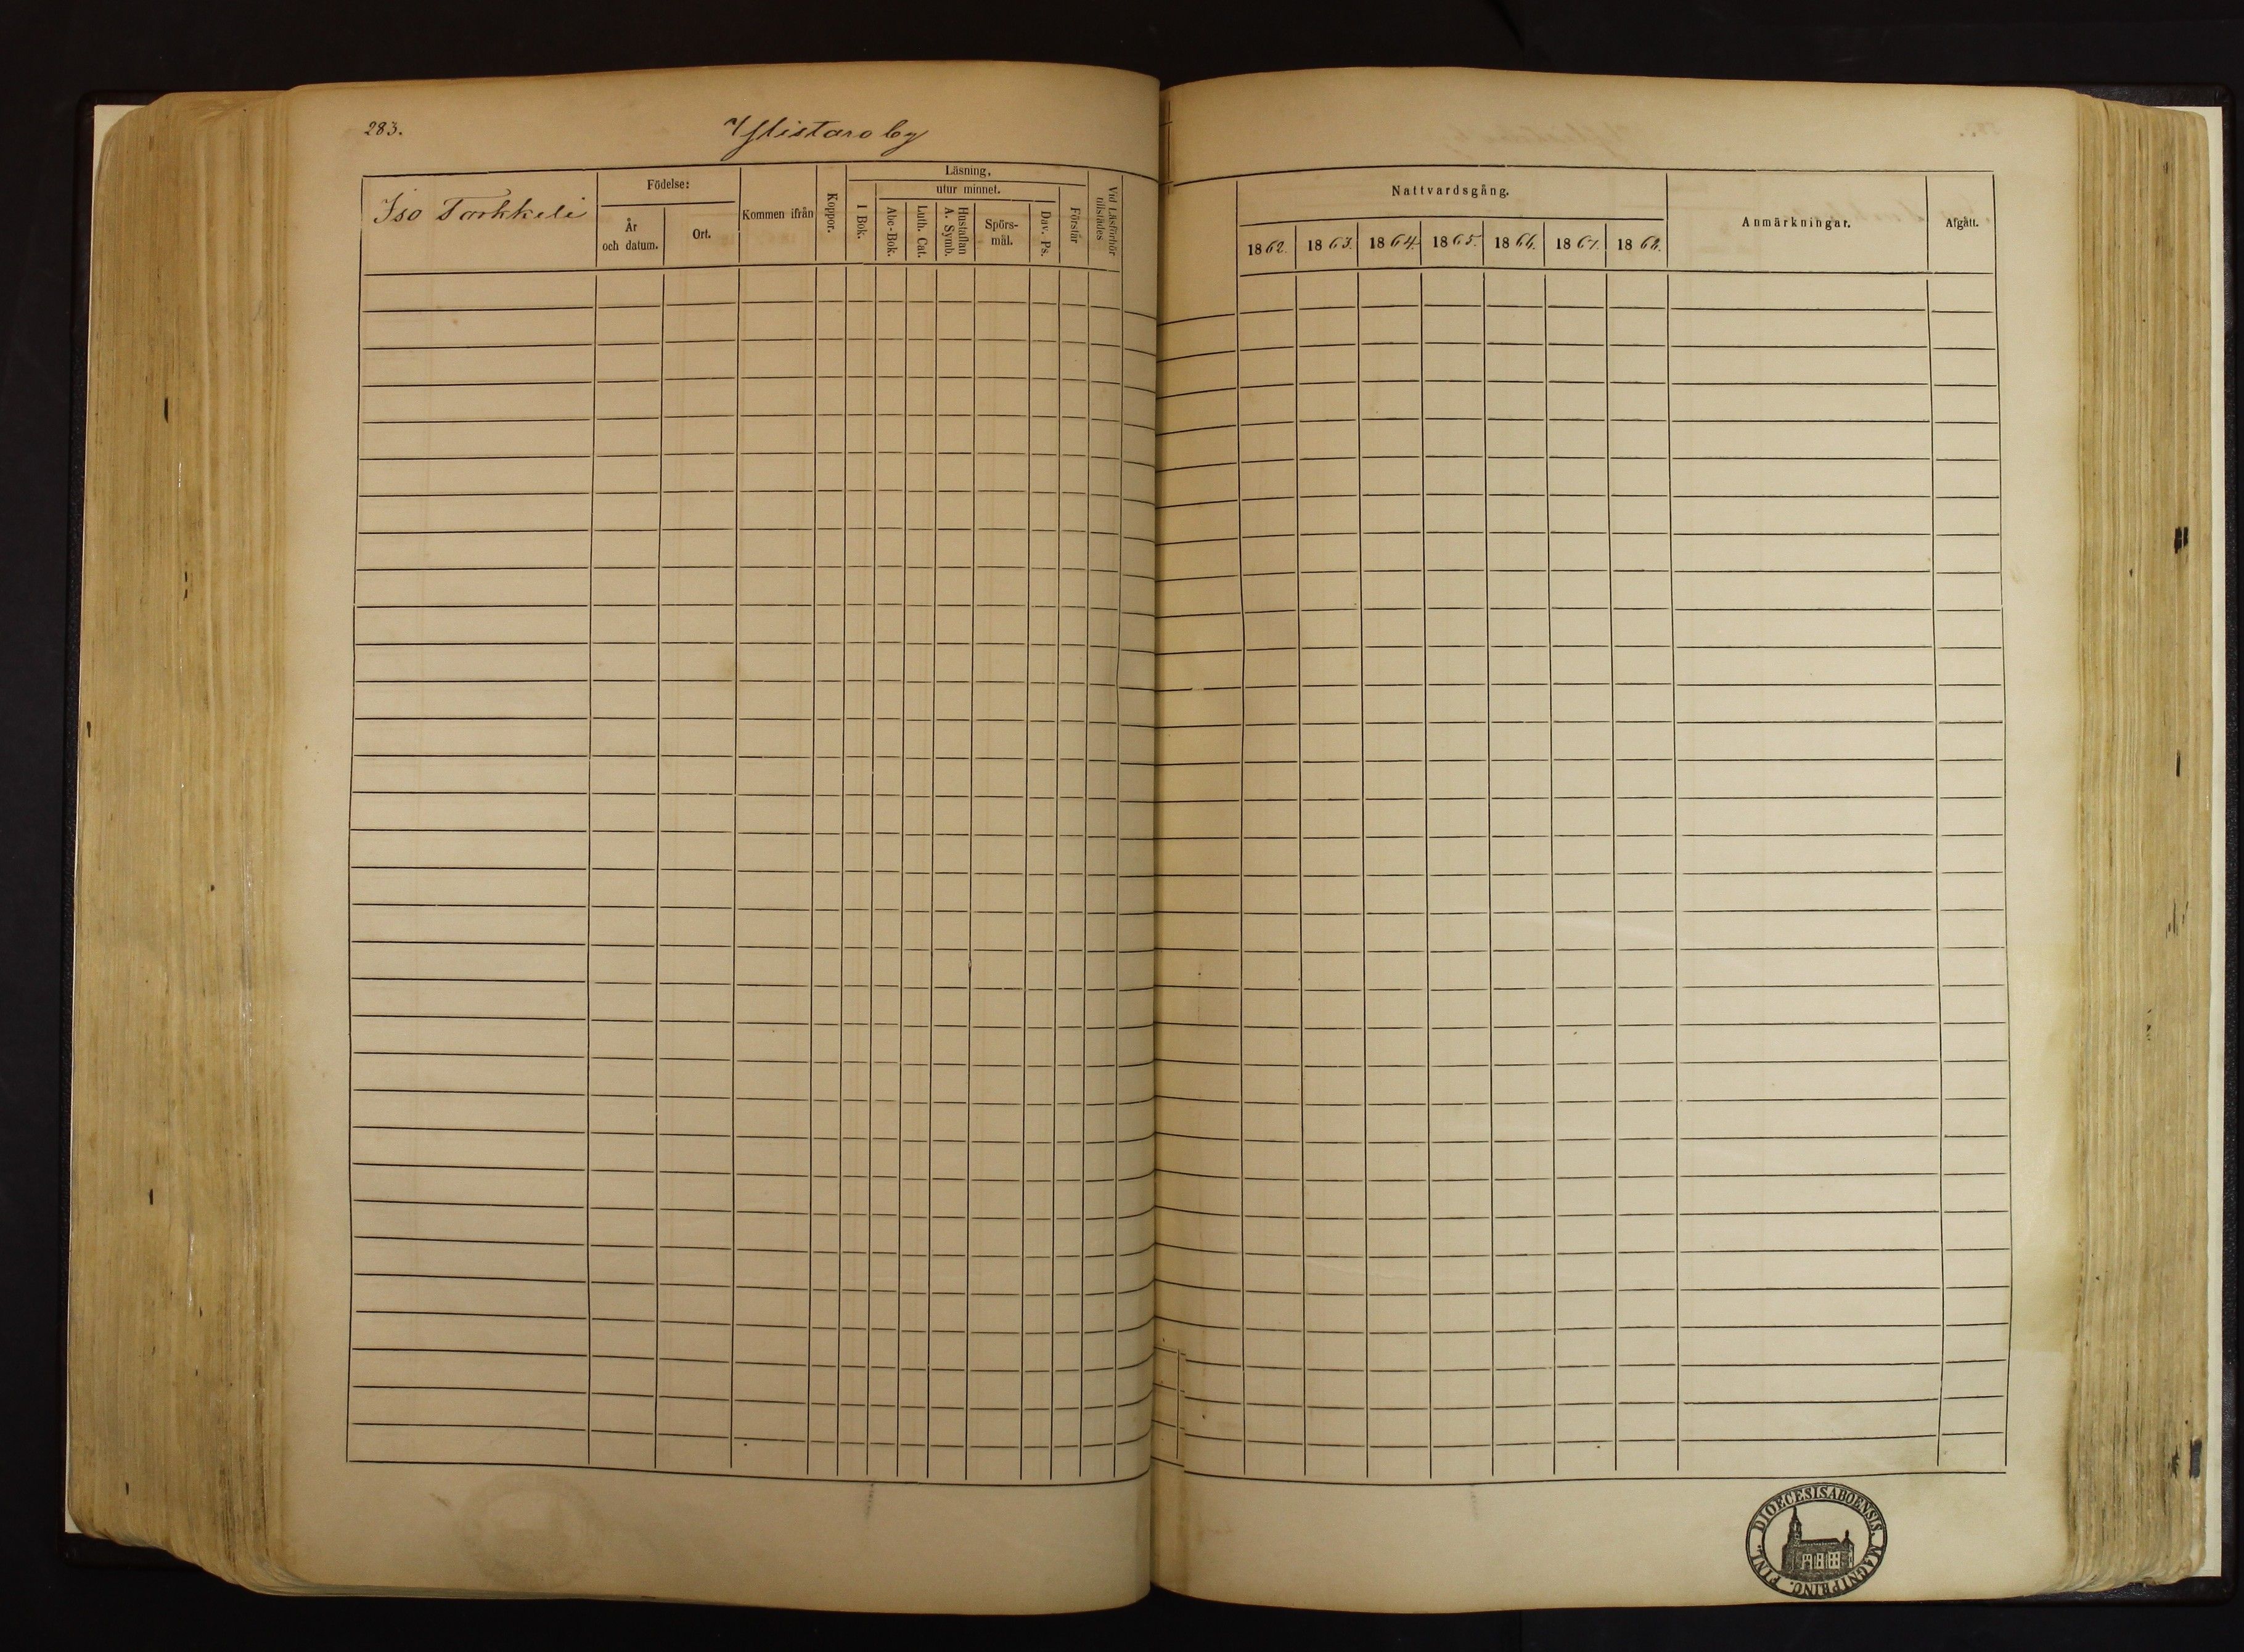 283.
Ylistaro by
Iso Tarkkeli
Födelse:
År
och datum.
Ort.
Kommen ifrån
Koppor.
Läsning,
I Bok.
utur minnet.
Abc-Bok.
Luth. Cat.
Hustaflan
A. Symb.
Spörs-
mål.
Dav. Ps.
Förstår
Vid Läsförhör
tillstädes
Nattvardsgång.
1862. 1863. 1864. 1865. 1866. 1867. 1868.
Anmärkningar.
Afgått.
DIOECESIS ABOENSIS. MAGNI PRINC. FINL.